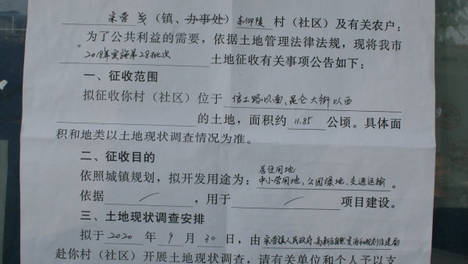 宋曹 (镇、办事处) 村（社区）及有关农户：
为了公共利益的需要，依据土地管理法律法规，现将我市
2018年实施第28批次 土地征收有关事项公告如下：
一、征收范围
拟征收你村（社区）位于 信工路以南，昆仑大街以西
的土地，面积约 11.85 公顷。具体面
积和地类以土地现状调查情况为准。
二、征收目的
居住用地
依照城镇规划，拟开发用途为：中小学用地、公园绿地、交通运输。
依据 ，用于 项目建设。
三、土地现状调查安排
拟于 2020 年 9 月 30 日，由 宋曹镇人民政府
赴你村（社区）开展土地现状调查，请有关单位和个人予以支